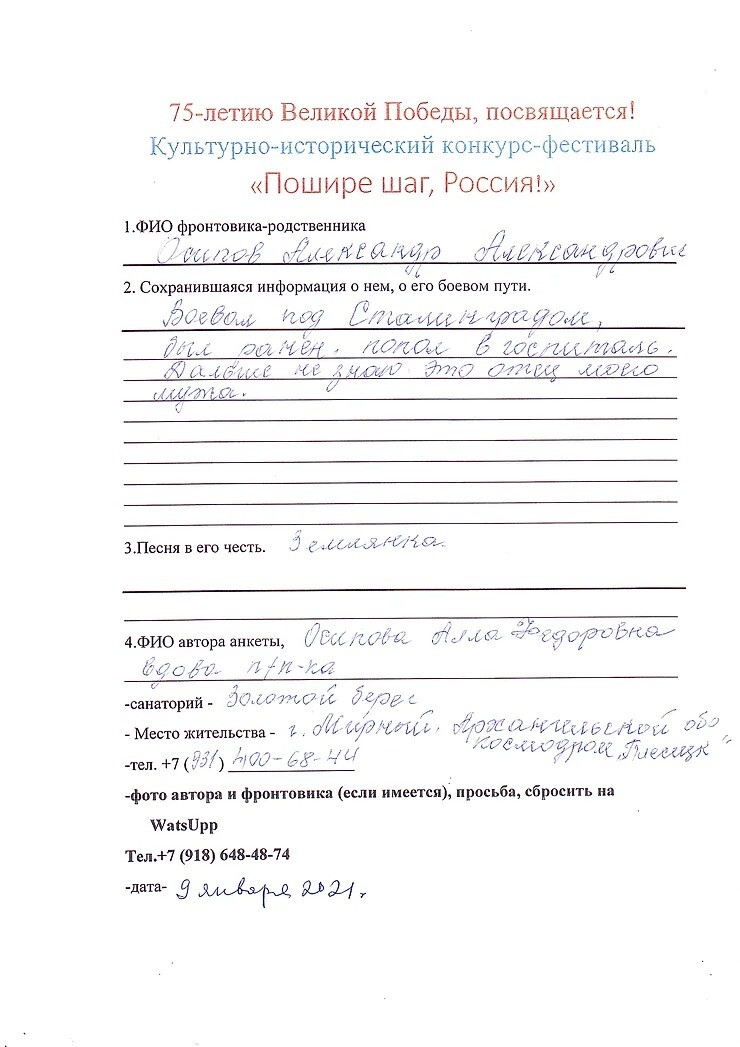 75-летию Великой Победы, посвящается!
Культурно-исторический конкурс-фестиваль
«Пошире шаг, Россия!»
1.ФИО фронтовика-родственника
Осипов Александр Александрович
2. Сохранившаяся информация о нем, о его боевом пути.
Воевал под Сталинградом,
был ранен. попал в госпиталь.
Дальше не знаю это отец моего
мужа.
3.Песня в его честь. Землянка.
4.ФИО автора анкеты, Осипова Алла Федоровна
вдова п/п-ка
-санаторий - Золотой берег
- Место жительства - г. Мирный, Архангельской обл
космодром „Плесецк"
-тел. +7 (931) 400-68-44
-фото автора и фронтовика (если имеется), просьба, сбросить на
WatsUpp
Тел.+7 (918) 648-48-74
-дата- 9 января 2021г.